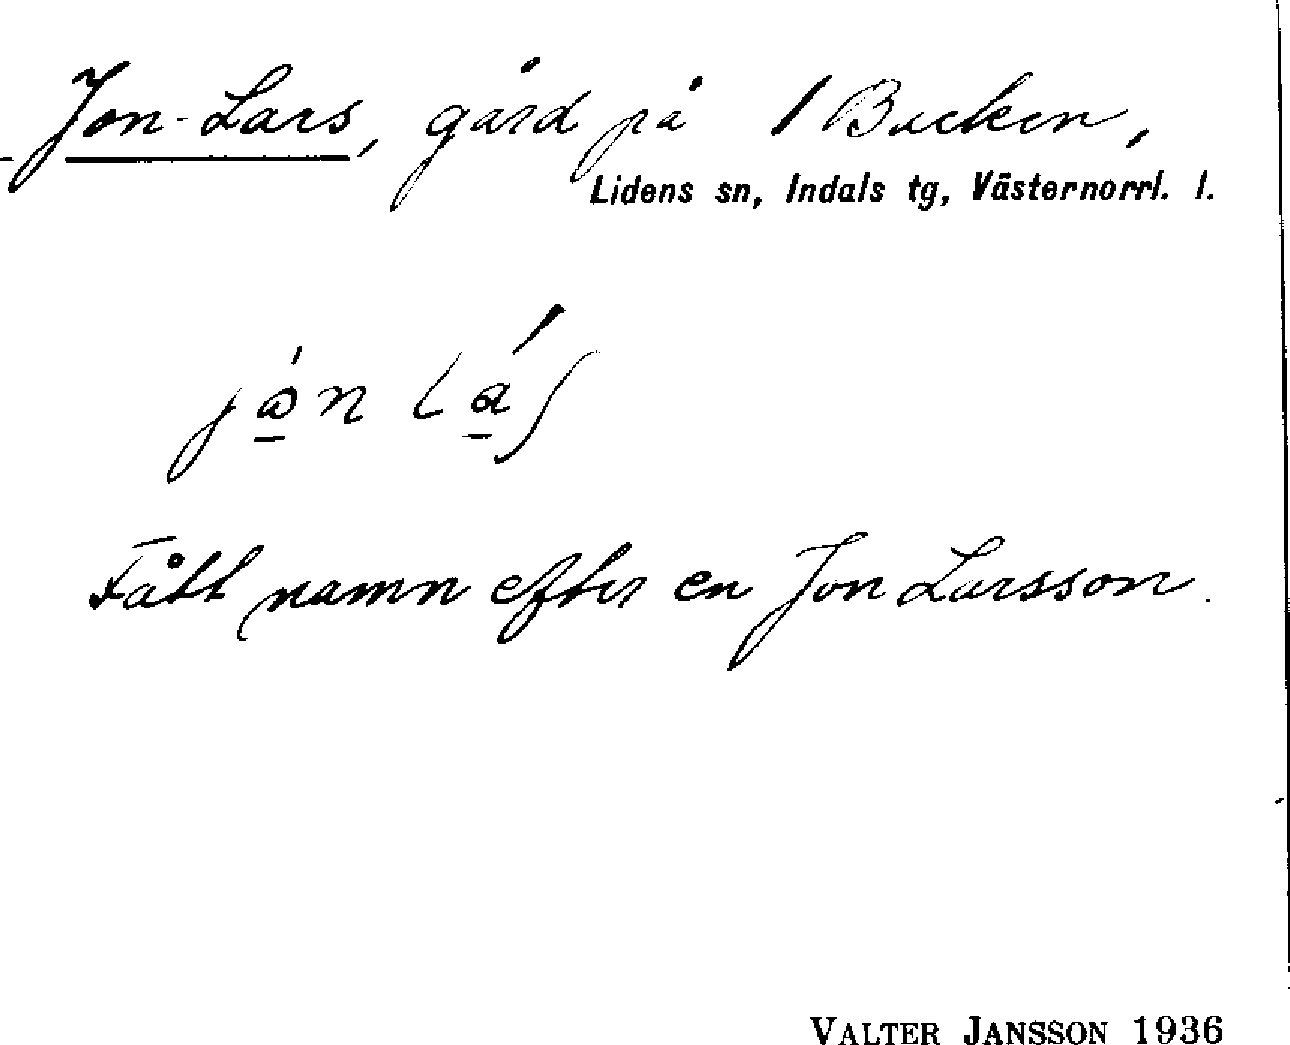 Jon-Lars, gård på 1 Backen,
Lidens sn, Indals tg, Västernorrl. l.
Fått namn efter en Jon Larsson.
VALTER JANSSON 1936